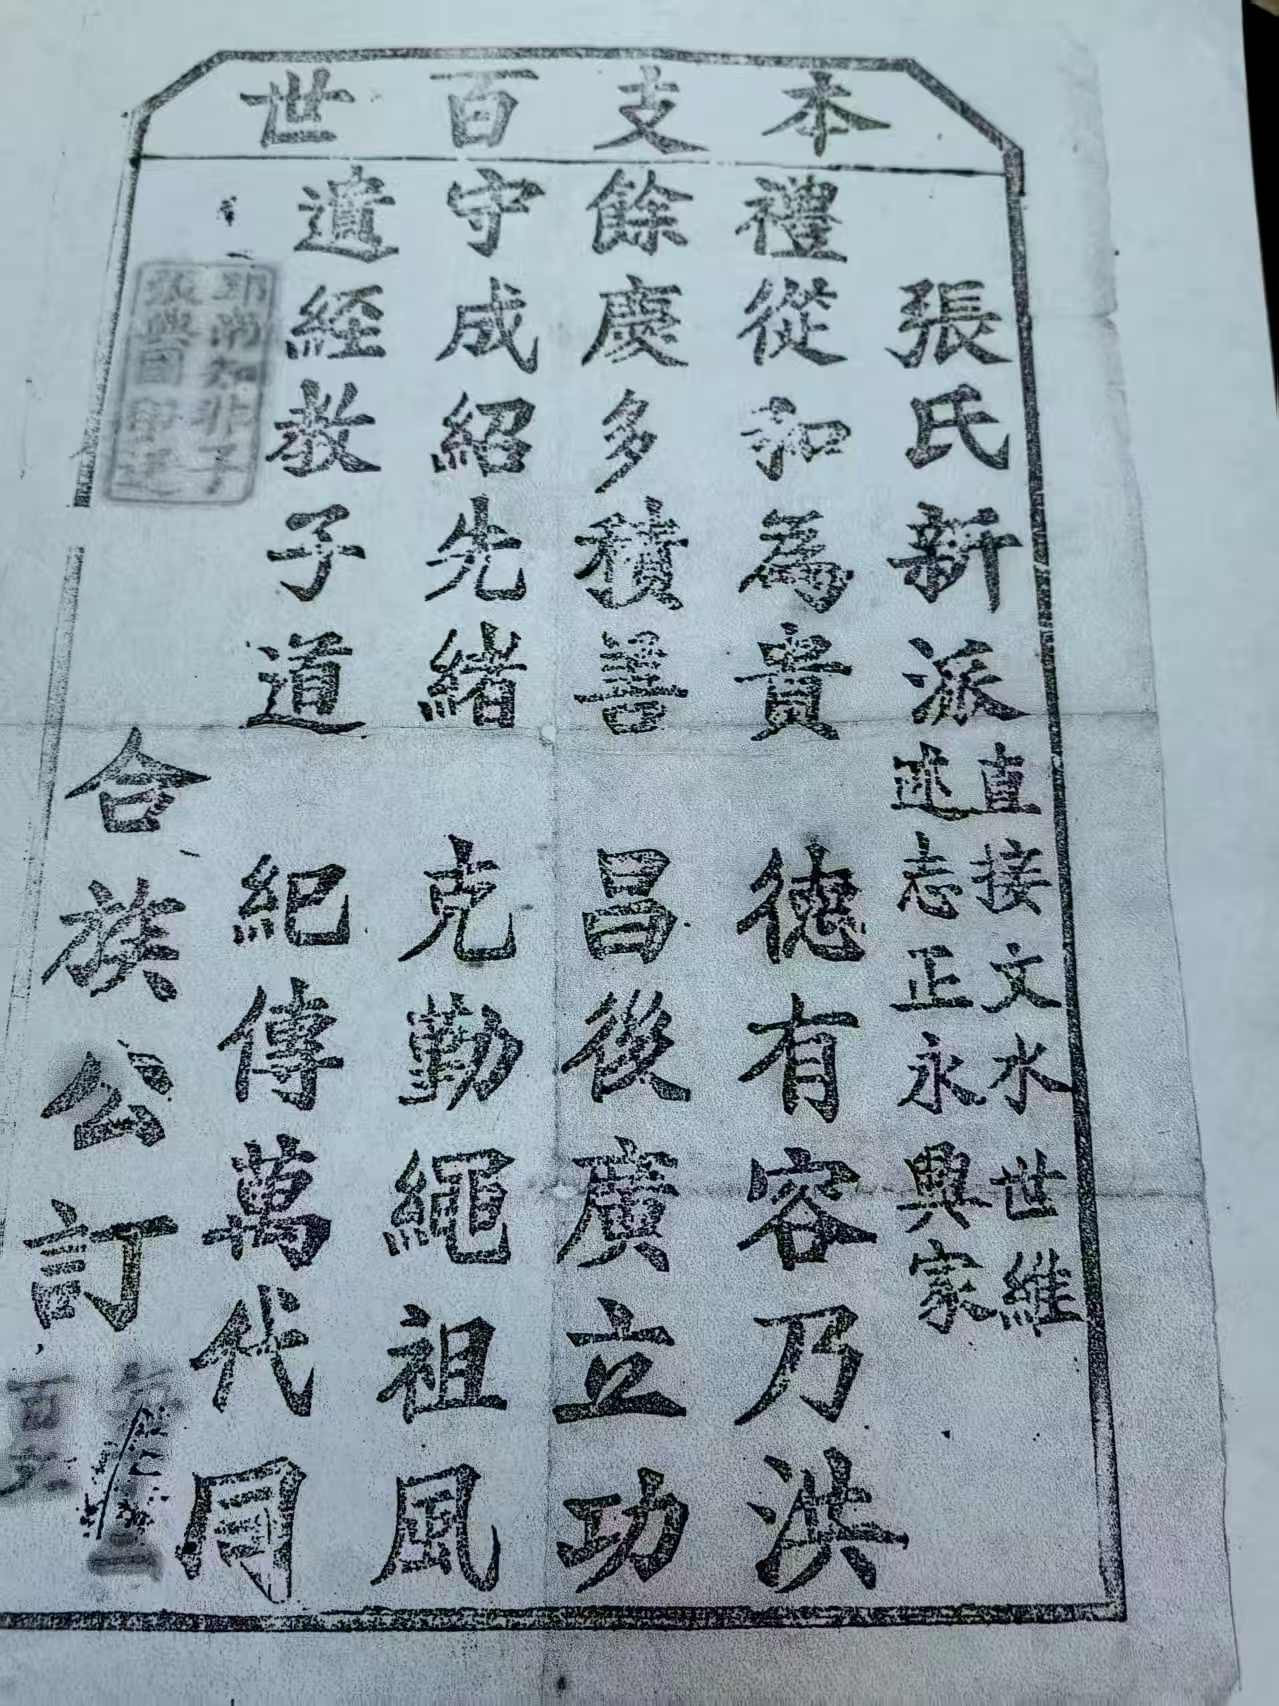 本支百世
張氏新派
直接文水世維
述志正永興家
禮從和為貴
德有容乃洪
餘慶多積善
昌後廣立功
守成紹先緒
克勤繩祖風
遺經教子道
紀傳萬代同
合族公訂
張興國
百文